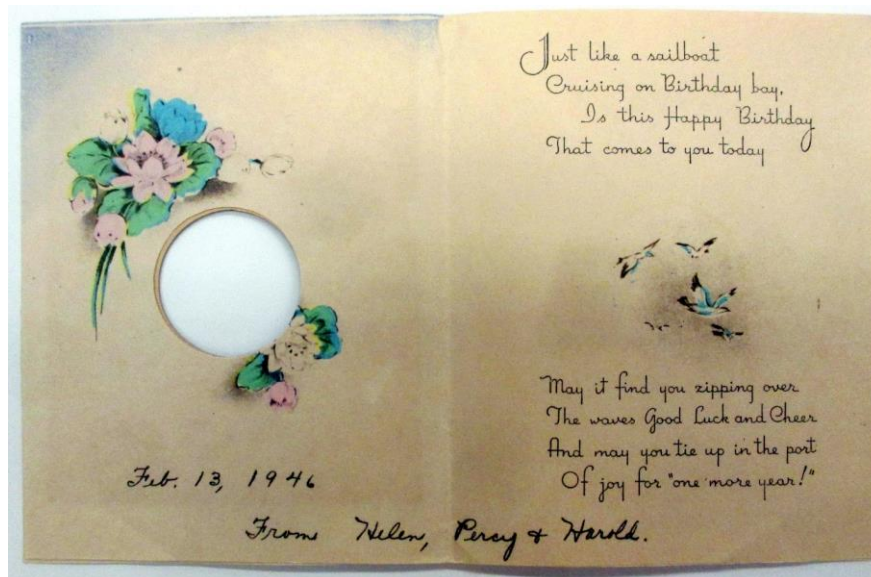 Just like a sailboat
Cruising on Birthday bay,
Is this Happy Birthday
That comes to you today
May it find you zipping over
The waves Good Luck and Cheer
And may you tie up in the port
Of joy for "one more year!"
Feb. 13, 1946
From Helen, Percy & Harold.